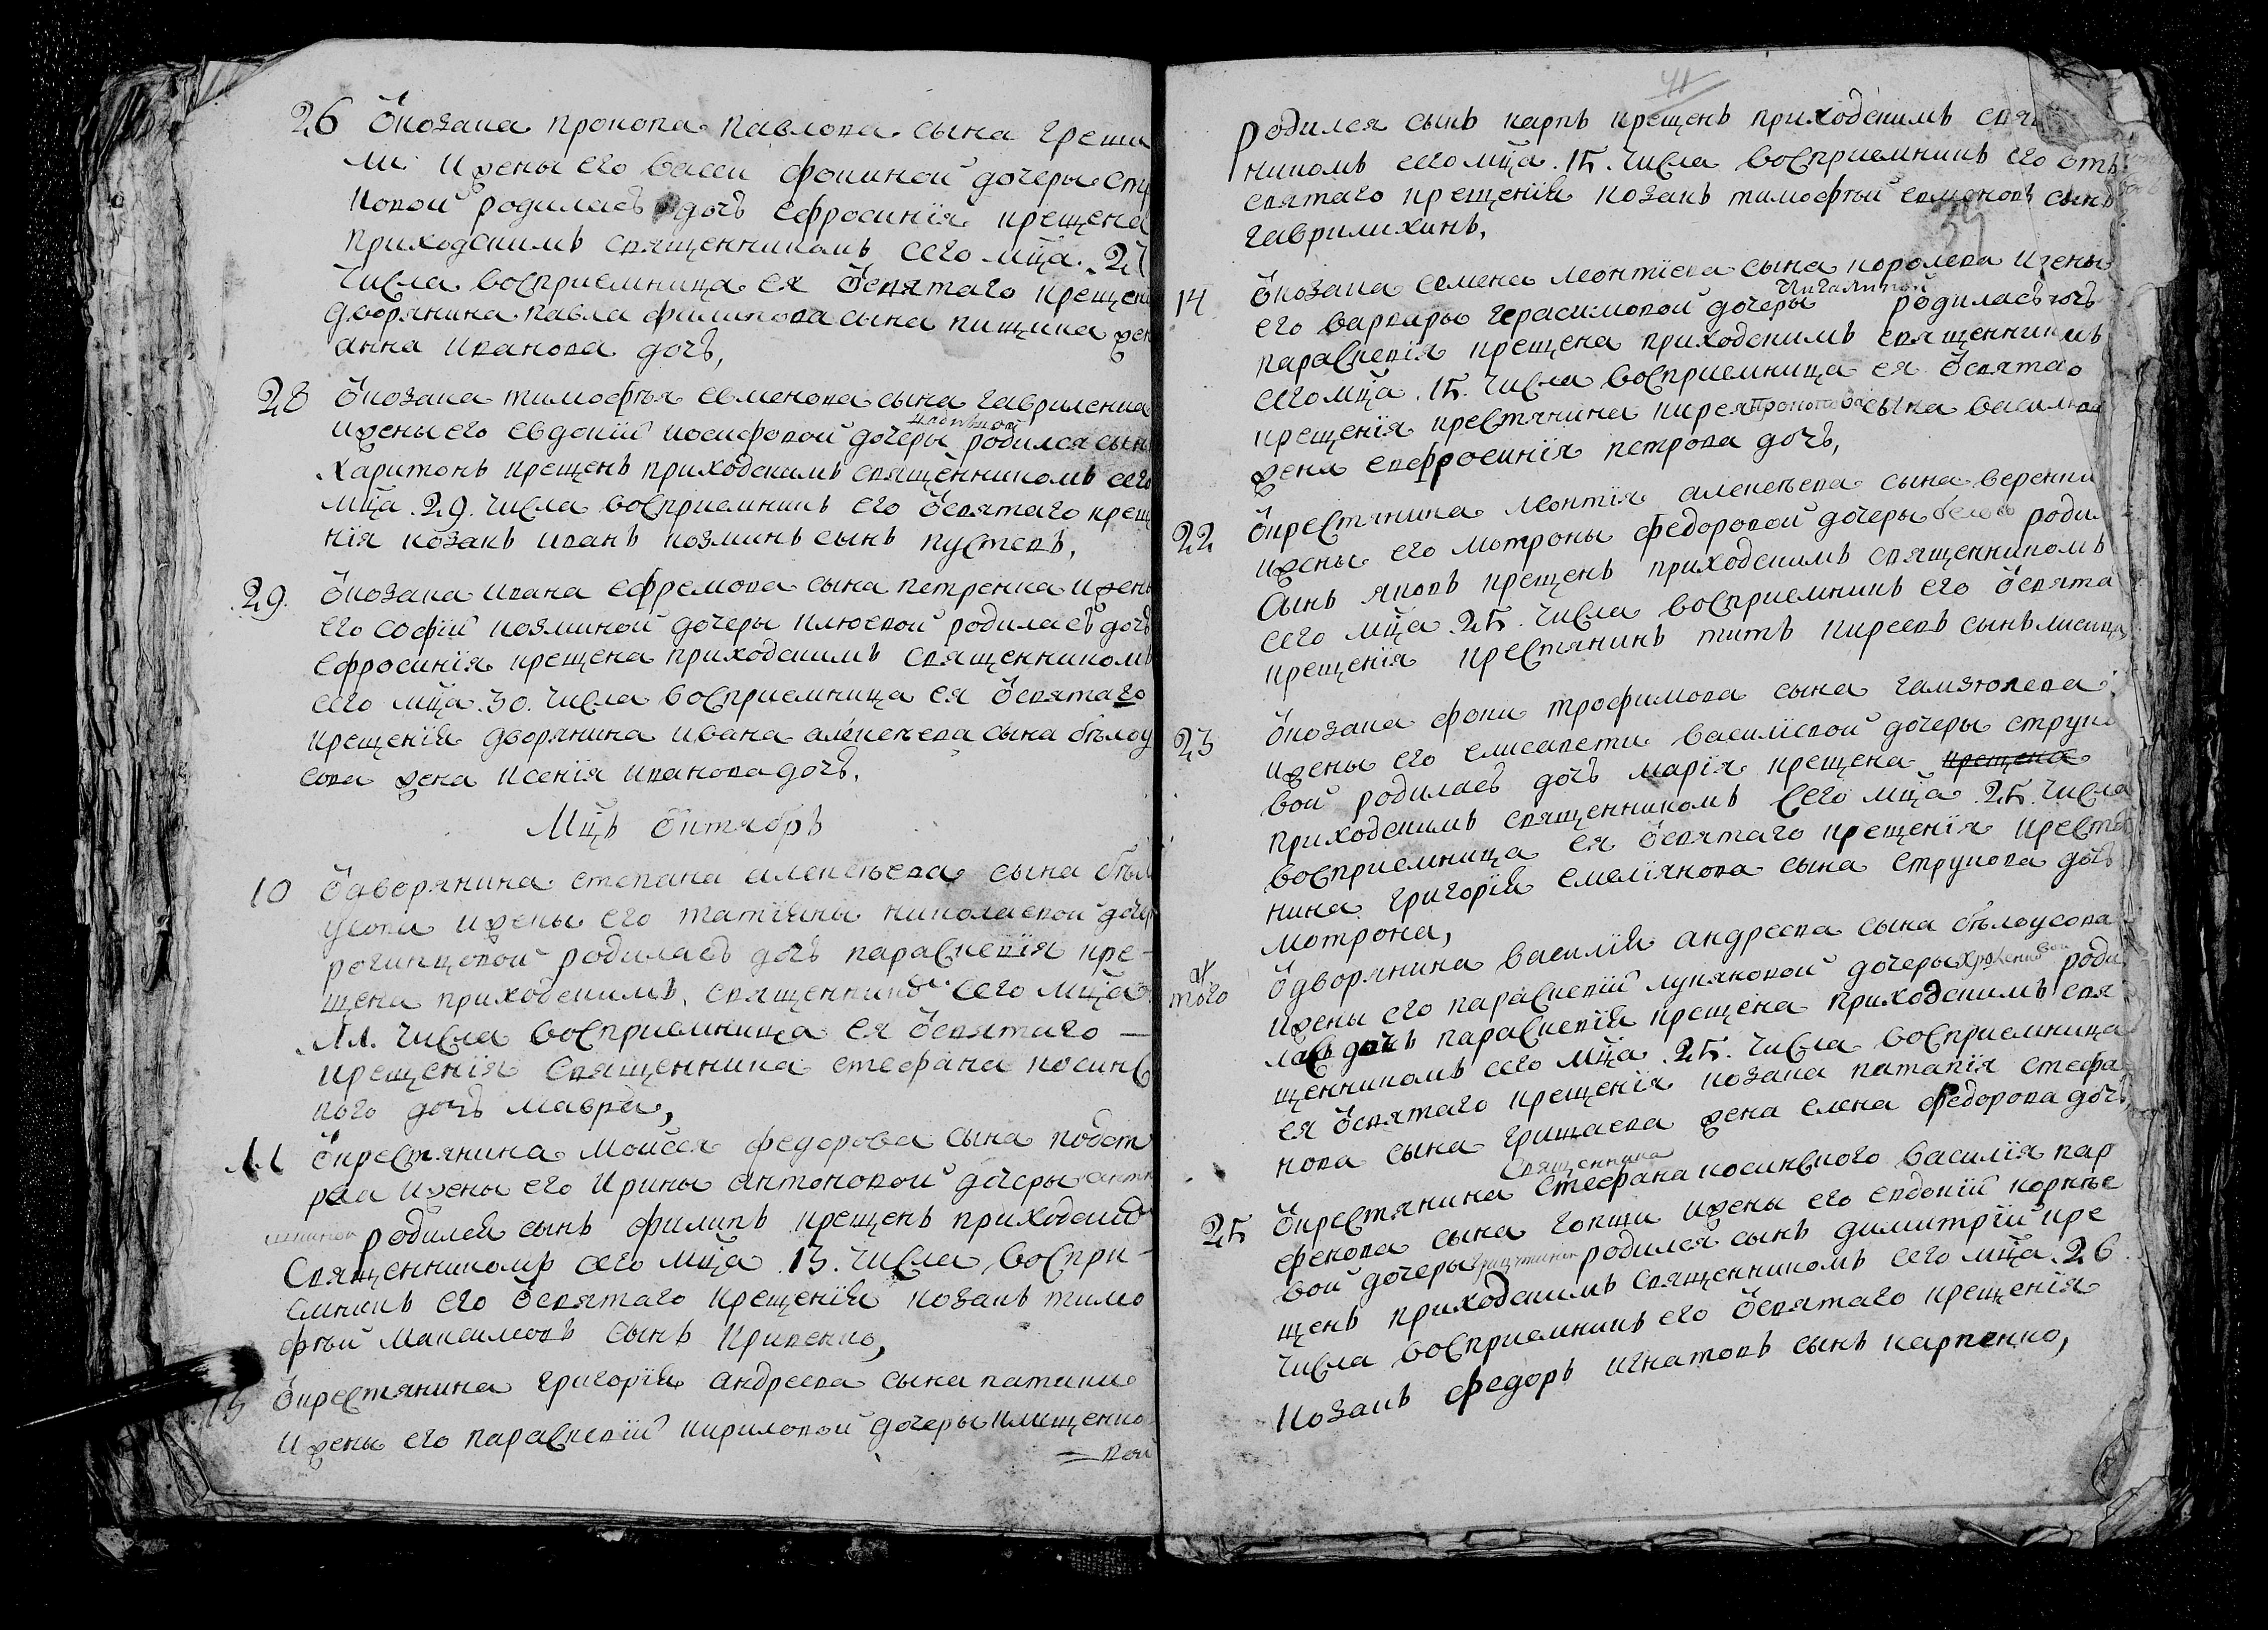 26 Ѿ козака прокопа павлова сына греша
ли и жены его васси фокиной дочеры
ковой родиласъ дочъ ефросинїя крещена
приходскимъ священникомъ сего мца. 27
числа восприемница ея ѿ святаго крещенї
дворянина павла филипова сына пищика жен
анна иванова дочъ,
28 Ѿ козака тимофѣя семенова сына гавриленка
и жены его евдокїй иосифовой дочеры родился сын
харитонъ крещенъ приходскимъ священникомъ сего
мца. 29. числа восприемникъ его ѿ святаго крещ
нїя козакъ иванъ козминъ сынъ пустевъ,
29. Ѿ козака ивана ефремова сына петренка и жены
его софїй козминой дочеры клюевой родиласъ дочъ
ефросинїя крещена приходскимъ священникомъ
сего мца. 30. числа восприемница ея ѿ святаго
крещенїя дворянина ивана алексеева сына бѣлоу
сова жена ксенїя иванова дочъ.
Мцъ Ѿктябръ
10 Ѿ дворянина степана алексѣева сына бѣл
усова и жены его татїяны николаевой дочер
рочинцовой родиласъ дочъ параскевїя кре-
щена приходскимъ священнико сего мца
11. числа восприемница ея ѿ святаго —
крещенїя священника стефана косинс
кого дочъ мавра,
11 Ѿ крестянина моисея федорова сына
рая и жены его ирины антоновой дочеры
родился сынъ филипъ крещенъ приходским
священникомъ сего мца 13. числа воспри-
емникъ его ѿ святаго крещенїя козакъ тимо
фѣй максимовъ сынъ кривенко,
13 Ѿ крестянина григорїя андреева сына патики
и жены его параскевїй кириловой дочеры клищенко
= вой
41
родился сынъ карпъ крещенъ приходскимъ свя
никомъ сего мца. 15. числа восприемникъ его отъ
святаго крещенїя козакъ тимофѣй семеновъ сынъ
гаврилихинъ,
14 Ѿ козака семена леонтїева сына королева и жены
чигалиной
его варвары герасимовой дочеры родиласъ дочъ
параскевїя крещена приходскимъ священникомъ
сего мца. 15. числа восприемница ея ѿ святаго
крещенїя крестянина кирея прокопова сына
жена евфросинїя петрова дочъ,
22 Ѿ крестянина леонтїя алексеева сына веренки
и жены его мотроны федоровой дочеры роди
сынъ яковъ крещенъ приходскимъ священникомъ
сего мца. 25. числа восприемникъ его ѿ свята
крещенїя крестянинъ титъ киреевъ сынъ лисица
23 Ѿ козака фоки трофимова сына гамзюлева
и жены его елисавети василїевой дочеры струко
вой родиласъ дочъ марїя крещена крещена
приходскимъ священникомъ сего мца. 25. числа
восприемница ея ѿ святаго крещенїя крестя
нина григорїя емелїянова сына струкова дочъ
мотрона,
того ж Ѿ дворянина василїя андреева сына бѣлоусова
и жены его параскевїй лукяновой дочеры роди
ласъ дочъ параскевїя крещена приходскимъ свя
щенникомъ сего мца. 25. числа восприемница
ея ѿ святаго крещенїя козака патапїя стефа
нова сына грищаева жена елена федорова дочъ,
священника
25 Ѿ крестянина стефана косинского василїя пар
фенова сына гопши и жены его евдокїй корнѣе
вой дочеры родился сынъ димитрїй кре
щенъ приходскимъ священникомъ сего мца. 26
числа восприемникъ его ѿ святаго крещенїя
козакъ федоръ игнатовъ сынъ карпенко,